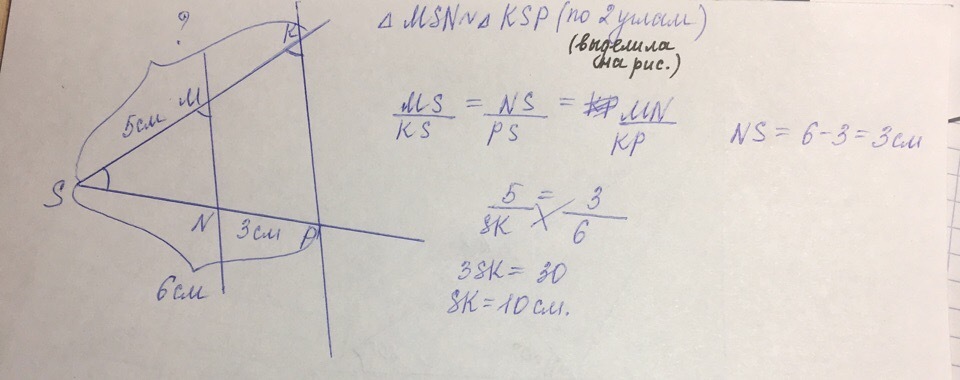 ?
K
M
5см
S
N
3см
P
6см
△ MSN ~ △ KSP (по 2 углам)
(выделила
на рис.)
MS/KS = NS/PS = MN/KP
NS = 6-3 = 3см
5/SK = 3/6
3SK = 30
SK = 10 см.